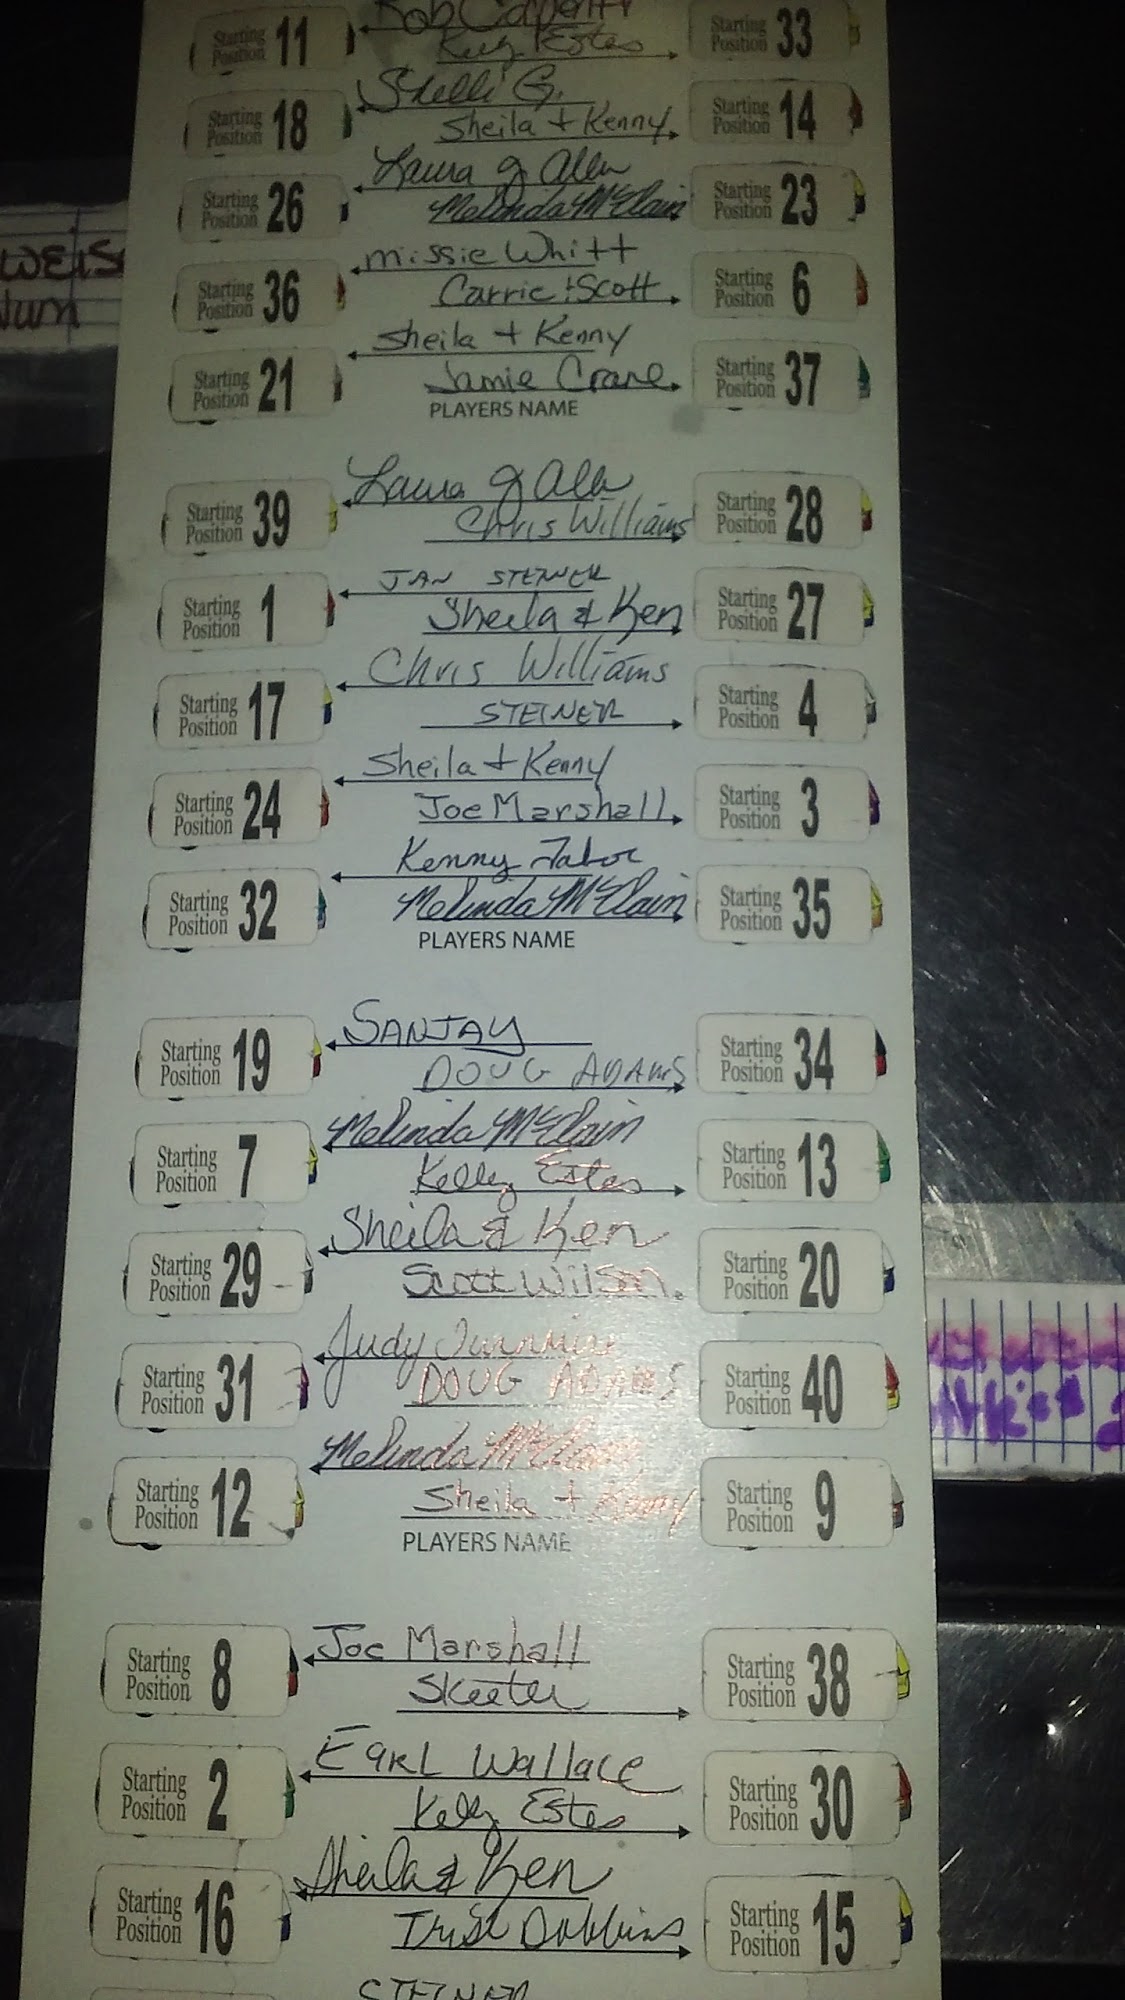 Starting Position 11
Rob Carpenter
Kelly Estes
Starting Position 33
Starting Position 18
Shelli G.
Sheila + Kenny
Starting Position 14
Starting Position 26
Laura & Allen
Melinda McClain
Starting Position 23
Starting Position 36
Missie Whitt
Carrie + Scott
Starting Position 6
Starting Position 21
Sheila + Kenny
Jamie Crane
Starting Position 37
PLAYERS NAME
Starting Position 39
Laura & Allen
Chris Williams
Starting Position 28
Starting Position 1
JAN STEINER
Sheila & Ken
Starting Position 27
Starting Position 17
Chris Williams
STEINER
Starting Position 4
Starting Position 24
Sheila + Kenny
Joe Marshall
Starting Position 3
Starting Position 32
Kenny Tabor
Melinda McClain
Starting Position 35
PLAYERS NAME
Starting Position 19
SANJAY
DOUG ADAMS
Starting Position 34
Starting Position 7
Melinda McClain
Kelly Estes
Starting Position 13
Starting Position 29
Sheila & Ken
Scott Wilson
Starting Position 20
Starting Position 31
Judy
DOUG ADAMS
Starting Position 40
Starting Position 12
Melinda McClain
Sheila + Kenny
Starting Position 9
PLAYERS NAME
Starting Position 8
Joe Marshall
Skeeter
Starting Position 38
Starting Position 2
EARL Wallace
Kelly Estes
Starting Position 30
Starting Position 16
Sheila & Ken
Trish Dobbins
Starting Position 15
STEINER